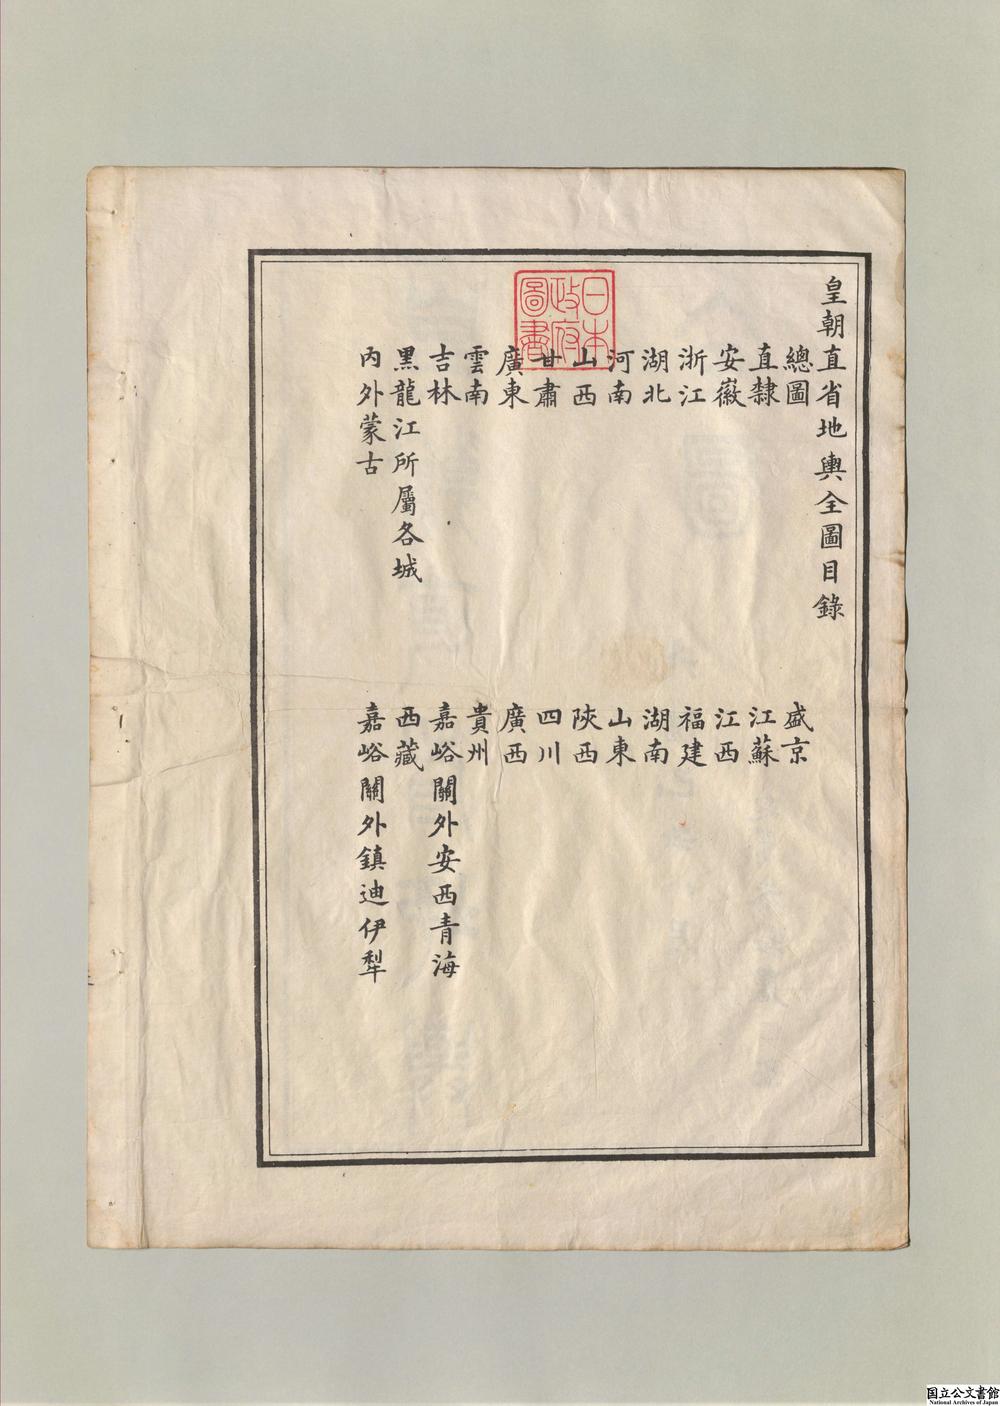 皇朝直省地輿全圖目錄
總圖
盛京
直隸
江蘇
安徽
江西
浙江
福建
湖北
湖南
河南
山東
山西
陝西
甘肅
四川
廣東
廣西
雲南
貴州
吉林
嘉峪關外安西青海
黑龍江所屬各城
西藏
內外蒙古
嘉峪關外鎮迪伊犁
日本
政府
圖書
国立公文書館
National Archives of Japan